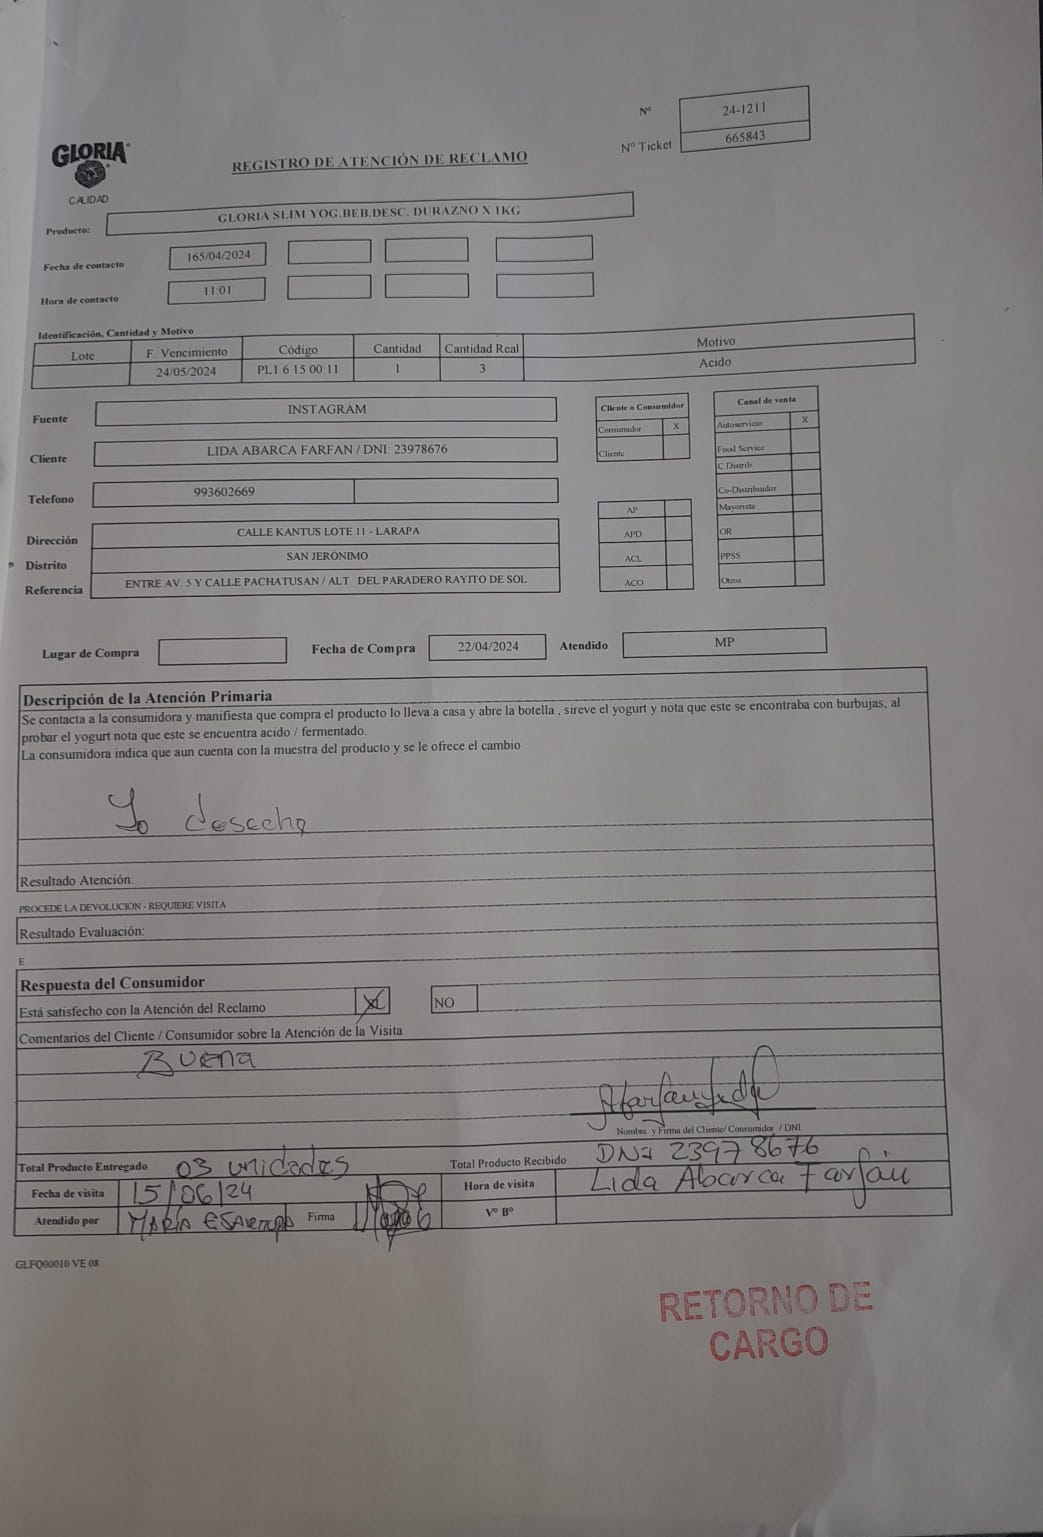 Nº 24-1211
Nº Ticket 665843
GLORIA
CALIDAD
REGISTRO DE ATENCIÓN DE RECLAMO
Producto: GLORIA SLIM YOG.BEB.DESC. DURAZNO X 1KG
Fecha de contacto 165/04/2024
Hora de contacto 11:01
Identificación, Cantidad y Motivo
Lote F. Vencimiento Código Cantidad Cantidad Real Motivo
24/05/2024 PL1 6 15 00:11 1 3 Acido
Fuente INSTAGRAM
Cliente LIDA ABARCA FARFAN / DNI: 23978676
Telefono 993602669
Dirección CALLE KANTUS LOTE 11 - LARAPA
Distrito SAN JERÓNIMO
Referencia ENTRE AV. 5 Y CALLE PACHATUSAN / ALT DEL PARADERO RAYITO DE SOL
Cliente o Consumidor
Consumidor X
Cliente
AP
APD
ACL
ACO
Canal de venta
Autoservicio X
Food Service
C.Distrib.
Co-Distribuidor
Mayorista
OR
PPSS
Otros
Lugar de Compra Fecha de Compra 22/04/2024 Atendido MP
Descripción de la Atención Primaria
Se contacta a la consumidora y manifiesta que compra el producto lo lleva a casa y abre la botella , sireve el yogurt y nota que este se encontraba con burbujas, al
probar el yogurt nota que este se encuentra acido / fermentado.
La consumidora indica que aun cuenta con la muestra del producto y se le ofrece el cambio
Lo desecho
Resultado Atención:
PROCEDE LA DEVOLUCION - REQUIERE VISITA
Resultado Evaluación:
E
Respuesta del Consumidor
Está satisfecho con la Atención del Reclamo NO
Comentarios del Cliente / Consumidor sobre la Atención de la Visita
Buena
Nombre y Firma del Cliente/ Consumidor / DNI
Total Producto Entregado 03 unidades Total Producto Recibido DNI 23978676
Fecha de visita 15/06/24 Hora de visita Lida Abarca Farfán
Atendido por MARÍA Firma Vº Bº
GLFQ00010 VE 08
RETORNO DE
CARGO